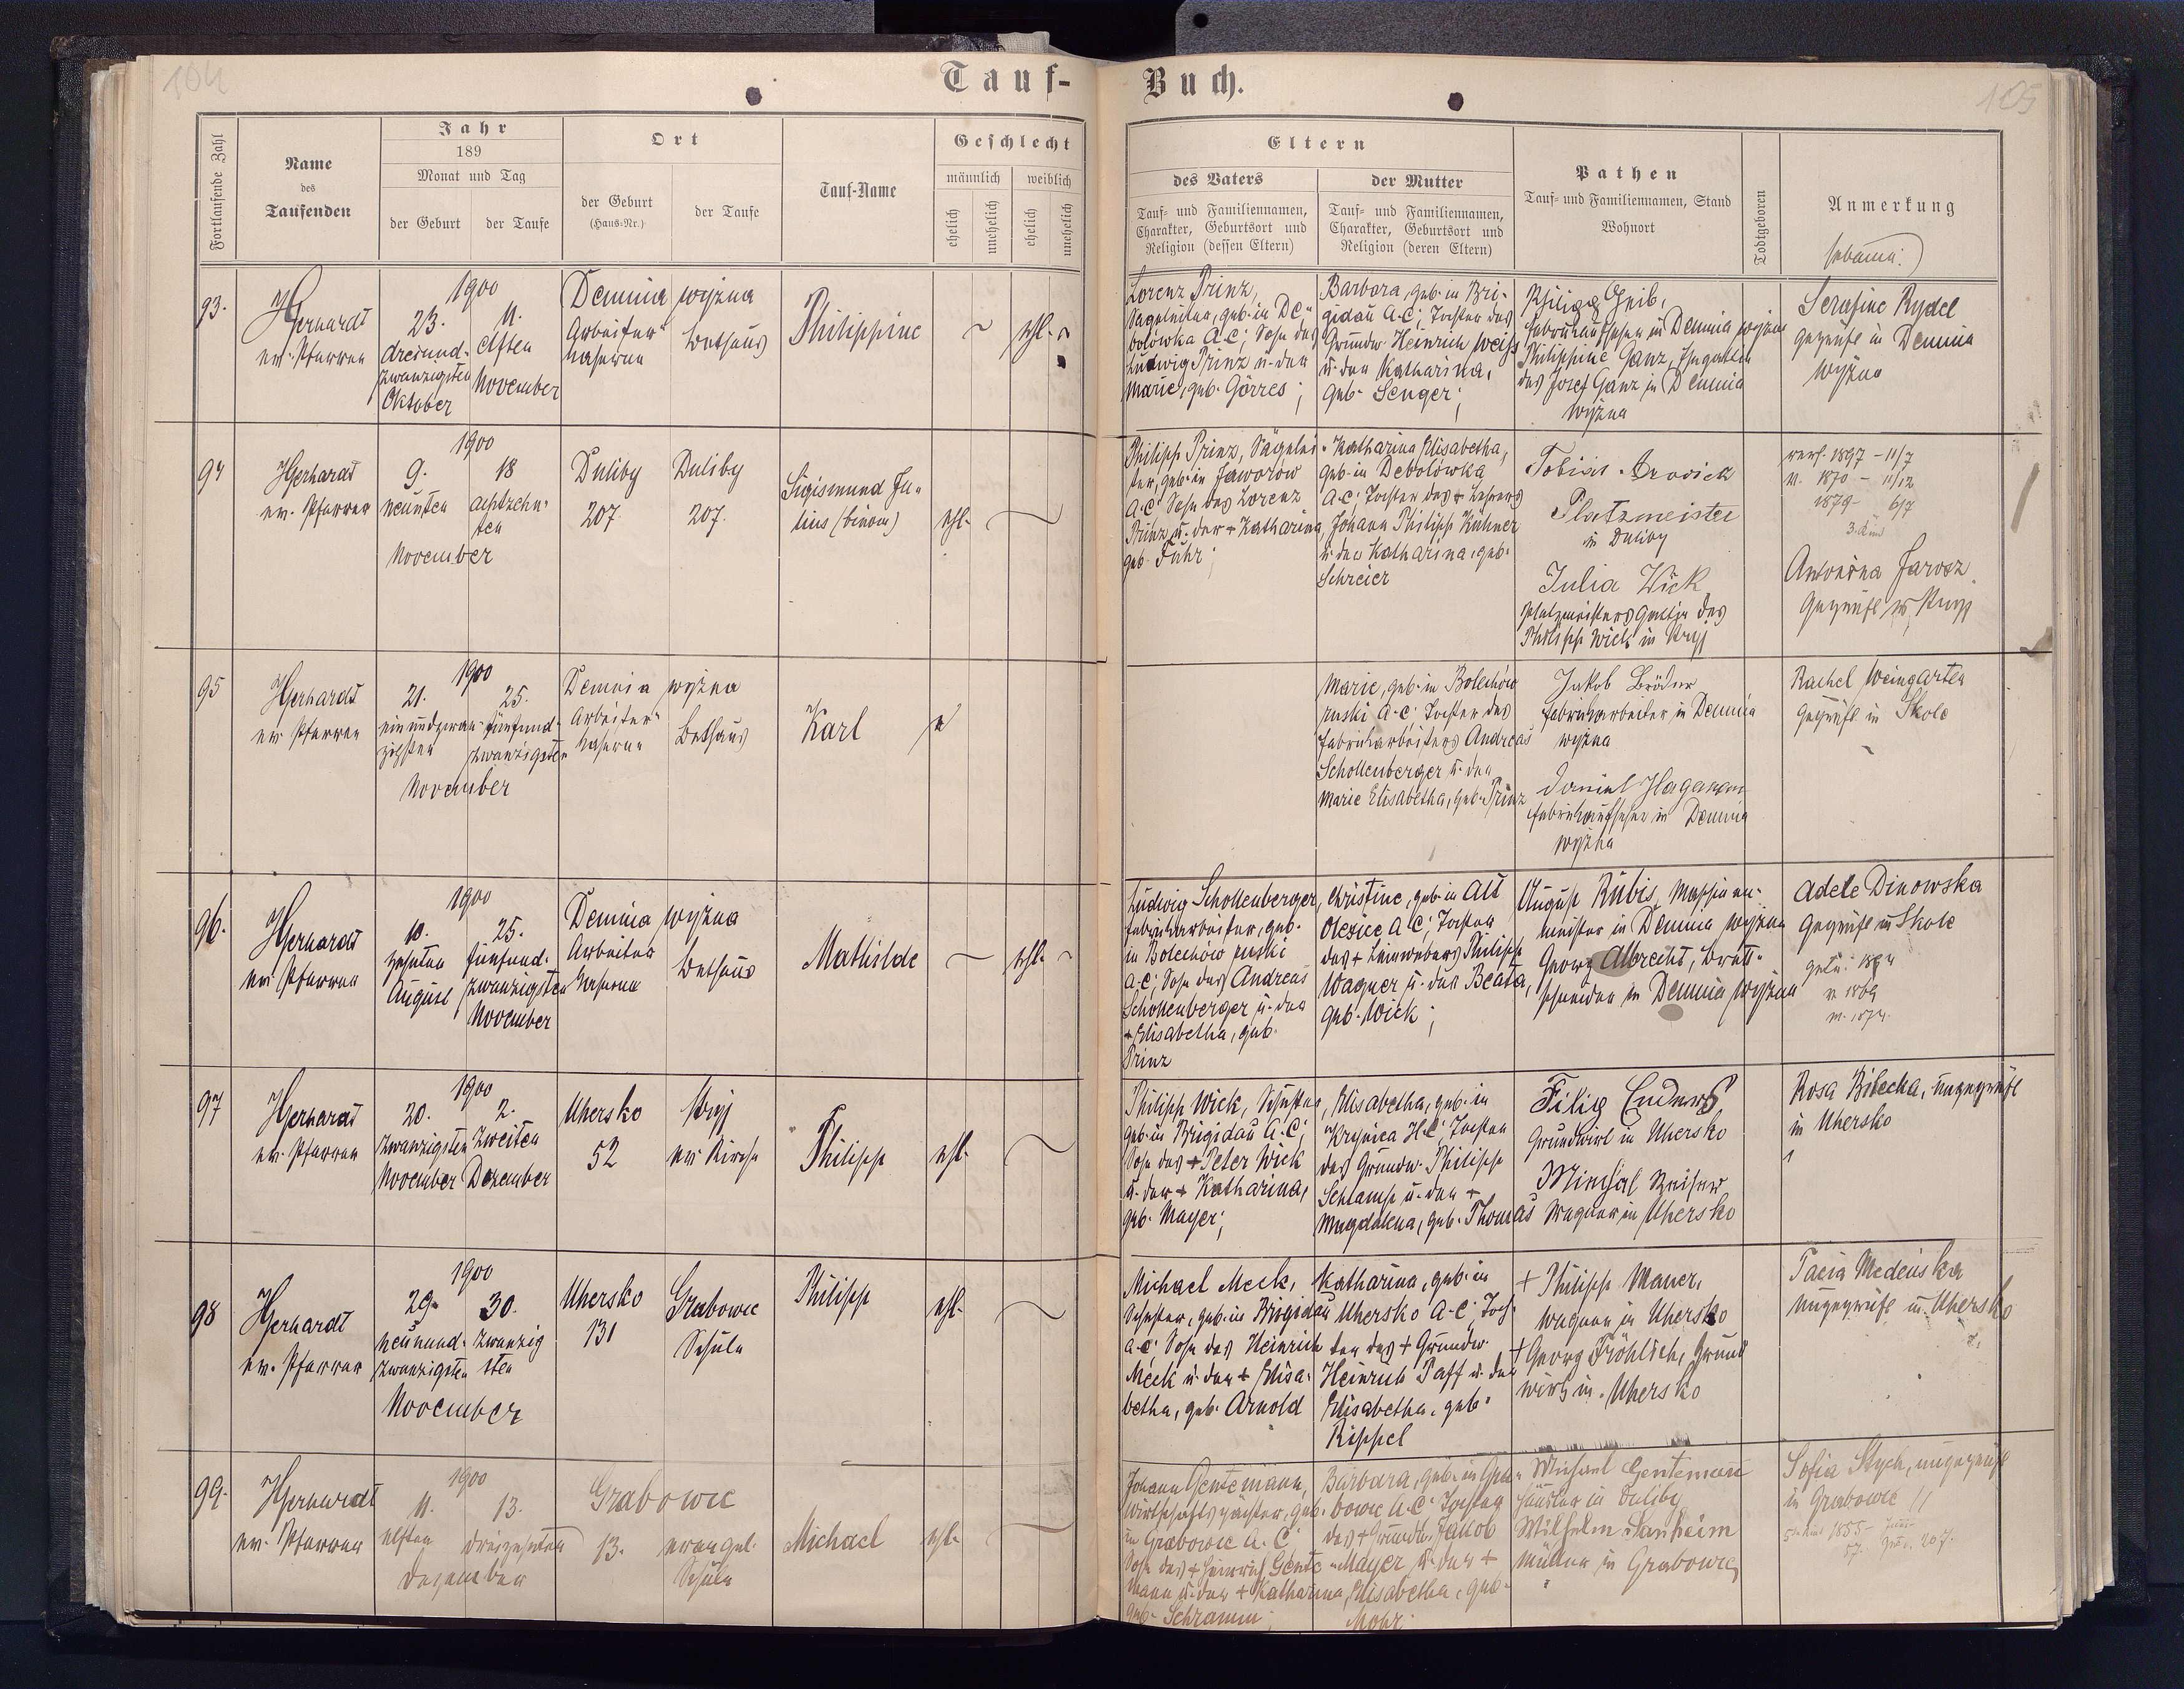 104
Tauf-
Buch.
105
Fortlaufende Zahl
Name
des
Taufenden
Jahr
189
Monat und Tag
der Geburt
der Taufe
Ort
der Geburt
(Haus-Nr.)
der Taufe
Tauf-Name
Geschlecht
männlich
weiblich
ehelich
unehelich
ehelich
unehelich
Eltern
des Vaters
Tauf- und Familiennamen,
Charakter, Geburtsort und
Religion (dessen Eltern)
der Mutter
Tauf- und Familiennamen,
Charakter, Geburtsort und
Religion (deren Eltern)
Pathen
Tauf- und Familiennamen, Stand
Wohnort
Todtgeboren
Anmerkung
93.
Gerhardt
ev. Pfarrer
1900
23.
dreiund-
zwanzigsten
Oktober
11.
elften
November
Demnia wyżna
Arbeiter-
kaserne
Bethaus
Philippine
ehl.
Lorenz Prinz,
geb. in De-
bolówka A.C; Sohn des
Ludwig Prinz u. der
Marie, geb. Görres;
Barbara, geb. in Bri-
gidau A.C; Tochter des
Grundw. Heinrich Weiss
u. der Katharina,
geb. Senger;
Philipp Geib,
Fabriksaufseher in Demnia wyżna
Philippine Ganz, Ehegattin
des Josef Ganz in Demnia
wyżna
Serafine Rydel
geprüft in Demnia
wyżna
94
Gerhardt
ev. Pfarrer
1900
9.
neunten
18
achtzehn-
ten
November
Duliby
207.
Duliby
207.
Sigismund Ju-
lius (binom)
ehl.
Philipp Prinz, Sägelei-
ter, geb. in Jaworow
A.C. Sohn des Lorenz
Prinz u. der + Katharina,
geb. Fuhr;
Katharina Elisabetha,
geb. in Debolówka
A.C; Tochter des + Lehrers
Johann Philipp Kühner
u. der Katharina, geb.
Schreier
Tobias
Platzmeister
in Duliby
Julia Wick
Platzmeisters Gattin des
Philipp Wick in Stryj
verh. 1897 - 11/7
n. 1870 - 11/12
1879 - 6/7
3. Kind
Antonina Jarosz
Geprüft in Stryj
95
Gerhardt
ev. Pfarrer
1900
21.
einundzwan-
zigsten
25.
fünfund-
zwanzigsten
November
Demnia wyżna
Arbeiter-
kaserne
Bethaus
Karl
Marie, geb. in Bolechów
ruski A.C; Tochter des
Fabriksarbeiters Andreas
Schollenberger u. der
Marie Elisabetha, geb. Prinz
Jakob Bröder
Fabriksarbeiter in Demnia
wyżna
Daniel
Fabriksaufseher in Demnia
wyżna
Rachel Weingarten
geprüft in Skole
96.
Gerhardt
ev. Pfarrer
1900
10.
zehnten
August
25.
fünfund-
zwanzigsten
November
Demnia wyżna
Arbeiter
kaserne
Bethaus
Mathilde
ehl.
Ludwig Schollenberger,
Fabriksarbeiter, geb.
in Bolechów ruski
A.C; Sohn des Andreas
Schollenberger u. der
+ Elisabetha, geb.
Prinz
Christine, geb. in Alt
Oleszyce A.C; Tochter
des + Leinwebers Philipp
Wagner u. der Beata,
geb. Wick;
August Kubis, Maschinen-
meister in Demnia wyżna
Georg Albrecht, Brett-
schneider in Demnia wyżna
Adele Dinowska
geprüft in Skole
97
Gerhardt
ev. Pfarrer
1900
20.
zwanzigsten
November
2.
zweiten
Dezember
Uhersko
52
Stryj
ev. Kirche
Philipp
ehl.
Philipp Wick, Schuster,
geb. in Brigidau A.C;
Sohn des + Peter Wick
u. der + Katharina,
geb. Mayer;
Elisabetha, geb. in
Krynica H.C; Tochter
des Grundw. Philipp
Schlamp u. der +
Magdalena, geb. Thomas
Filip Enders
Grundwirt in Uhersko
Michael Reiser
Wagner in Uhersko
Rosa Bibecka, ungeprüft
in Uhersko
98
Gerhardt
ev. Pfarrer
1900
29.
neunund-
zwanzigsten
30.
November
Uhersko
131
Grabowce
Schule
Philipp
ehl.
Michael Meck,
Schuster, geb. in Brigidau
A.C; Sohn des Heinrich
Meck u. der + Elisa-
betha, geb. Arnold
Katharina, geb. in
Uhersko A.C; Toch-
ter des + Grundw.
Heinrich Paff u. der
Elisabetha, geb.
Rippel
+ Philipp Mauer,
Wagner in Uhersko
+ Georg Fröhlich, Grund
wirt in Uhersko
Tacia Medeńska
ungeprüft in Uhersko
99.
Gerhardt
ev. Pfarrer
1900
11.
elften
13.
dreizehnten
Dezember
Grabowce
13.
evangel.
Schule
Michael
ehl.
Johann Gentemann,
Wirtschaftspächter, geb.
in Grabowce A.C;
Sohn des + Heinrich Gente-
mann u. der + Katharina
geb. Schramm;
Barbara, geb. in Gra-
bowce A.C; Tochter
des + Grundw. Jakob
Mayer u. der +
Elisabetha, geb.
Mohr;
Michael Gentemann
Häusler in Duliby
Wilhelm Manheim
Müller in Grabowce
Sofia Stych, ungeprüft
in Grabowce